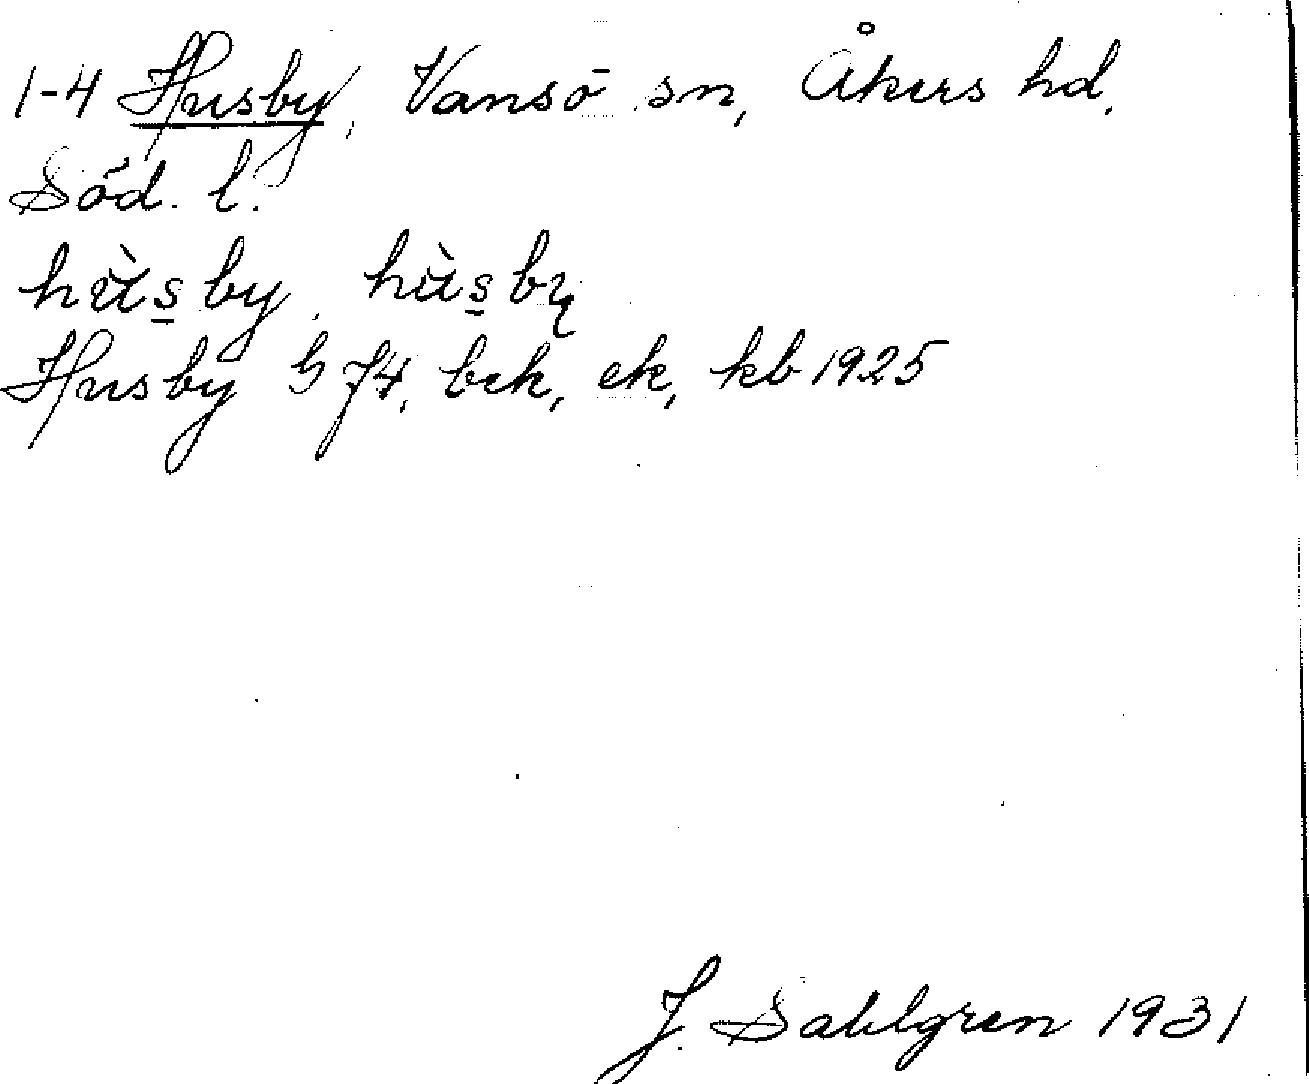 1-4 Husby, Vansö sn, Åkers hd.
Söd. l.
hùs̲by, hùs̲by
Husby G 74, bek, ek, kb 1925
J. Sahlgren 1931